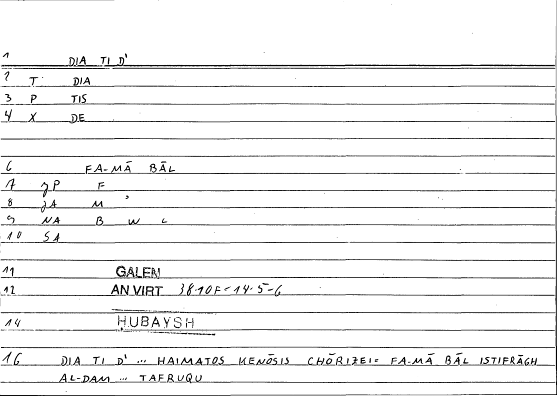 1 DIA TI D'
2 T DIA
3 P TIS
4 X DE
6 FA-MĀ BĀL
7 JP F
8 JA M '
9 NA B W L
10 SA
11 GALEN
12 AN VIRT 38-10F=14-5-6
14 HUBAYSH
16 DIA TI D' ... HAIMATOS KENŌSIS CHŌRIZEI = FA-MĀ BĀL ISTIFRĀGH
AL-DAM ... TAFRUQU